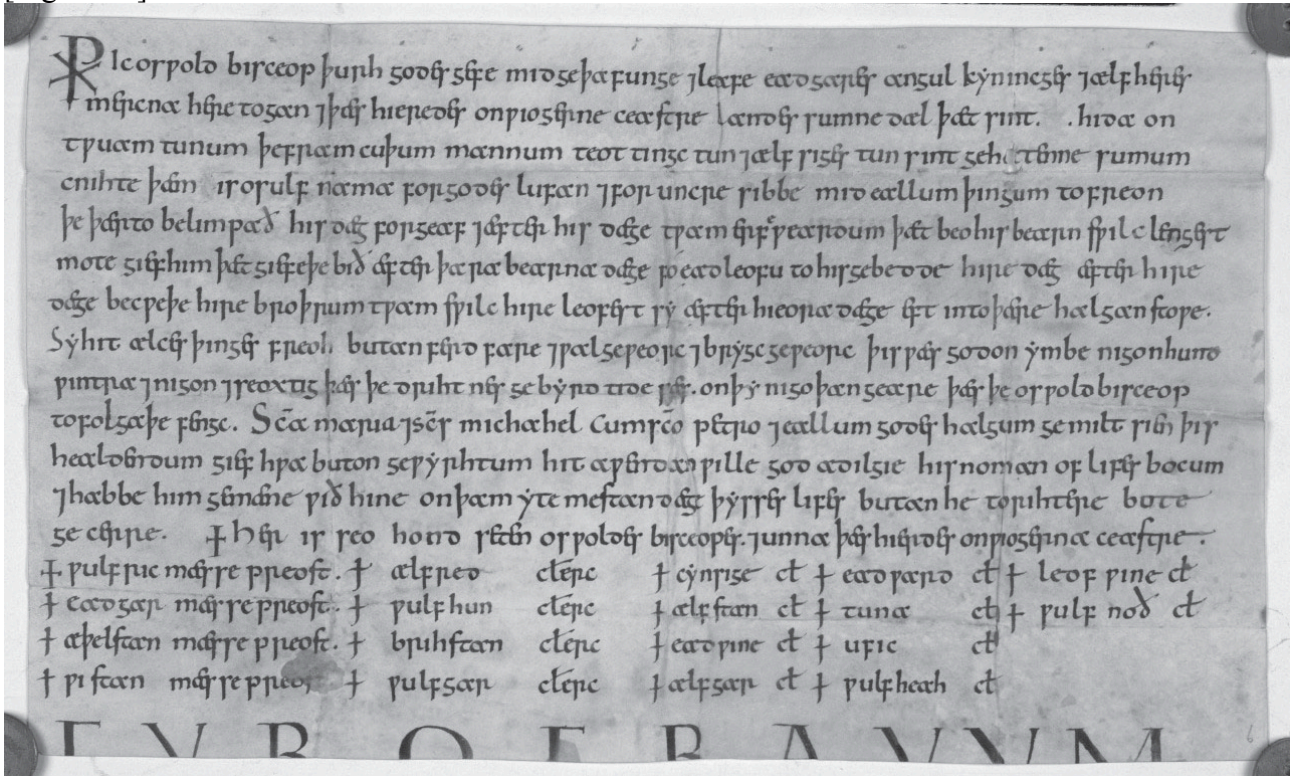 Ic osƿold bisceop þurh godes gefe mid geþafunge ⁊ leafe eadgares angul kynincges ⁊ ælfheres
mercna heretogan ⁊ þæs hieredes on ƿiogerne ceastre landes sumne dæl þæt sint . . hida on
tƿuam tunum þe fram cuþum mannum teottingctun ⁊ ælfsiges tun sint gehatenne sumum
cnihte þæm is osulf nama for godes lufan ⁊ for uncre sibbe mid eallum þingum to freon
þe þærto belimpað his dæg forgeaf ⁊ æfter his dæge tƿæm erfeƿeardum þæt beo his bearn sƿilc lengest
mote gief him þæt gifeþe bið æfter þara bearna dæge fo eadleofu to his gebedde hire dæg æfter hire
dæge becƿeþe hire broþrum tƿæm sƿilc hire leofest sy æfter hieora dæge eft into þære halgan stope.
Sy hit ælces þinges freoh butan ferd fare ⁊ ƿalgeƿeorc ⁊ brycggeƿeorc þis ƿæs gedon ymbe nigon hund
ƿintra ⁊ nigon ⁊ seoxtig þæs þe drihtnes gebyrdtide ƿæs. on þy nigoþan geare þæs þe osƿold bisceop
to folgaþe fengc. Sca maria ⁊ scs michahel cum sco petro ⁊ eallum godes halgum gemiltsien þis
healdendum gief hƿa buton geƿyrhtum hit abrecan ƿille god adilgie his noman of lifes bocum
⁊ habbe him gemæne ƿið hine on þam ytemestan dæg þysses lifes butan he to rihtere bote
gecerre. ✝ Her is seo hond seten osƿoldes bisceopes. ⁊ unna þæs hierdes on ƿiogerna ceastre.
✝ ƿulfric mæssepreost. ✝ ælfred cłeric ✝ cynsige cł ✝ eadƿard cł ✝ leofƿine cł
✝ eadgar mæssepreost. ✝ ƿulfhun cłeric ✝ ælfstan cł ✝ tuna cł ✝ ƿulfnoð cł
✝ æþelstan mæssepreost. ✝ bruhstan cłeric ✝ eadƿine cł ✝ ufic cł
✝ ƿistan mæssepreost ✝ ƿulfgar cłeric ✝ ælfgar cł ✝ ƿulfheah cł